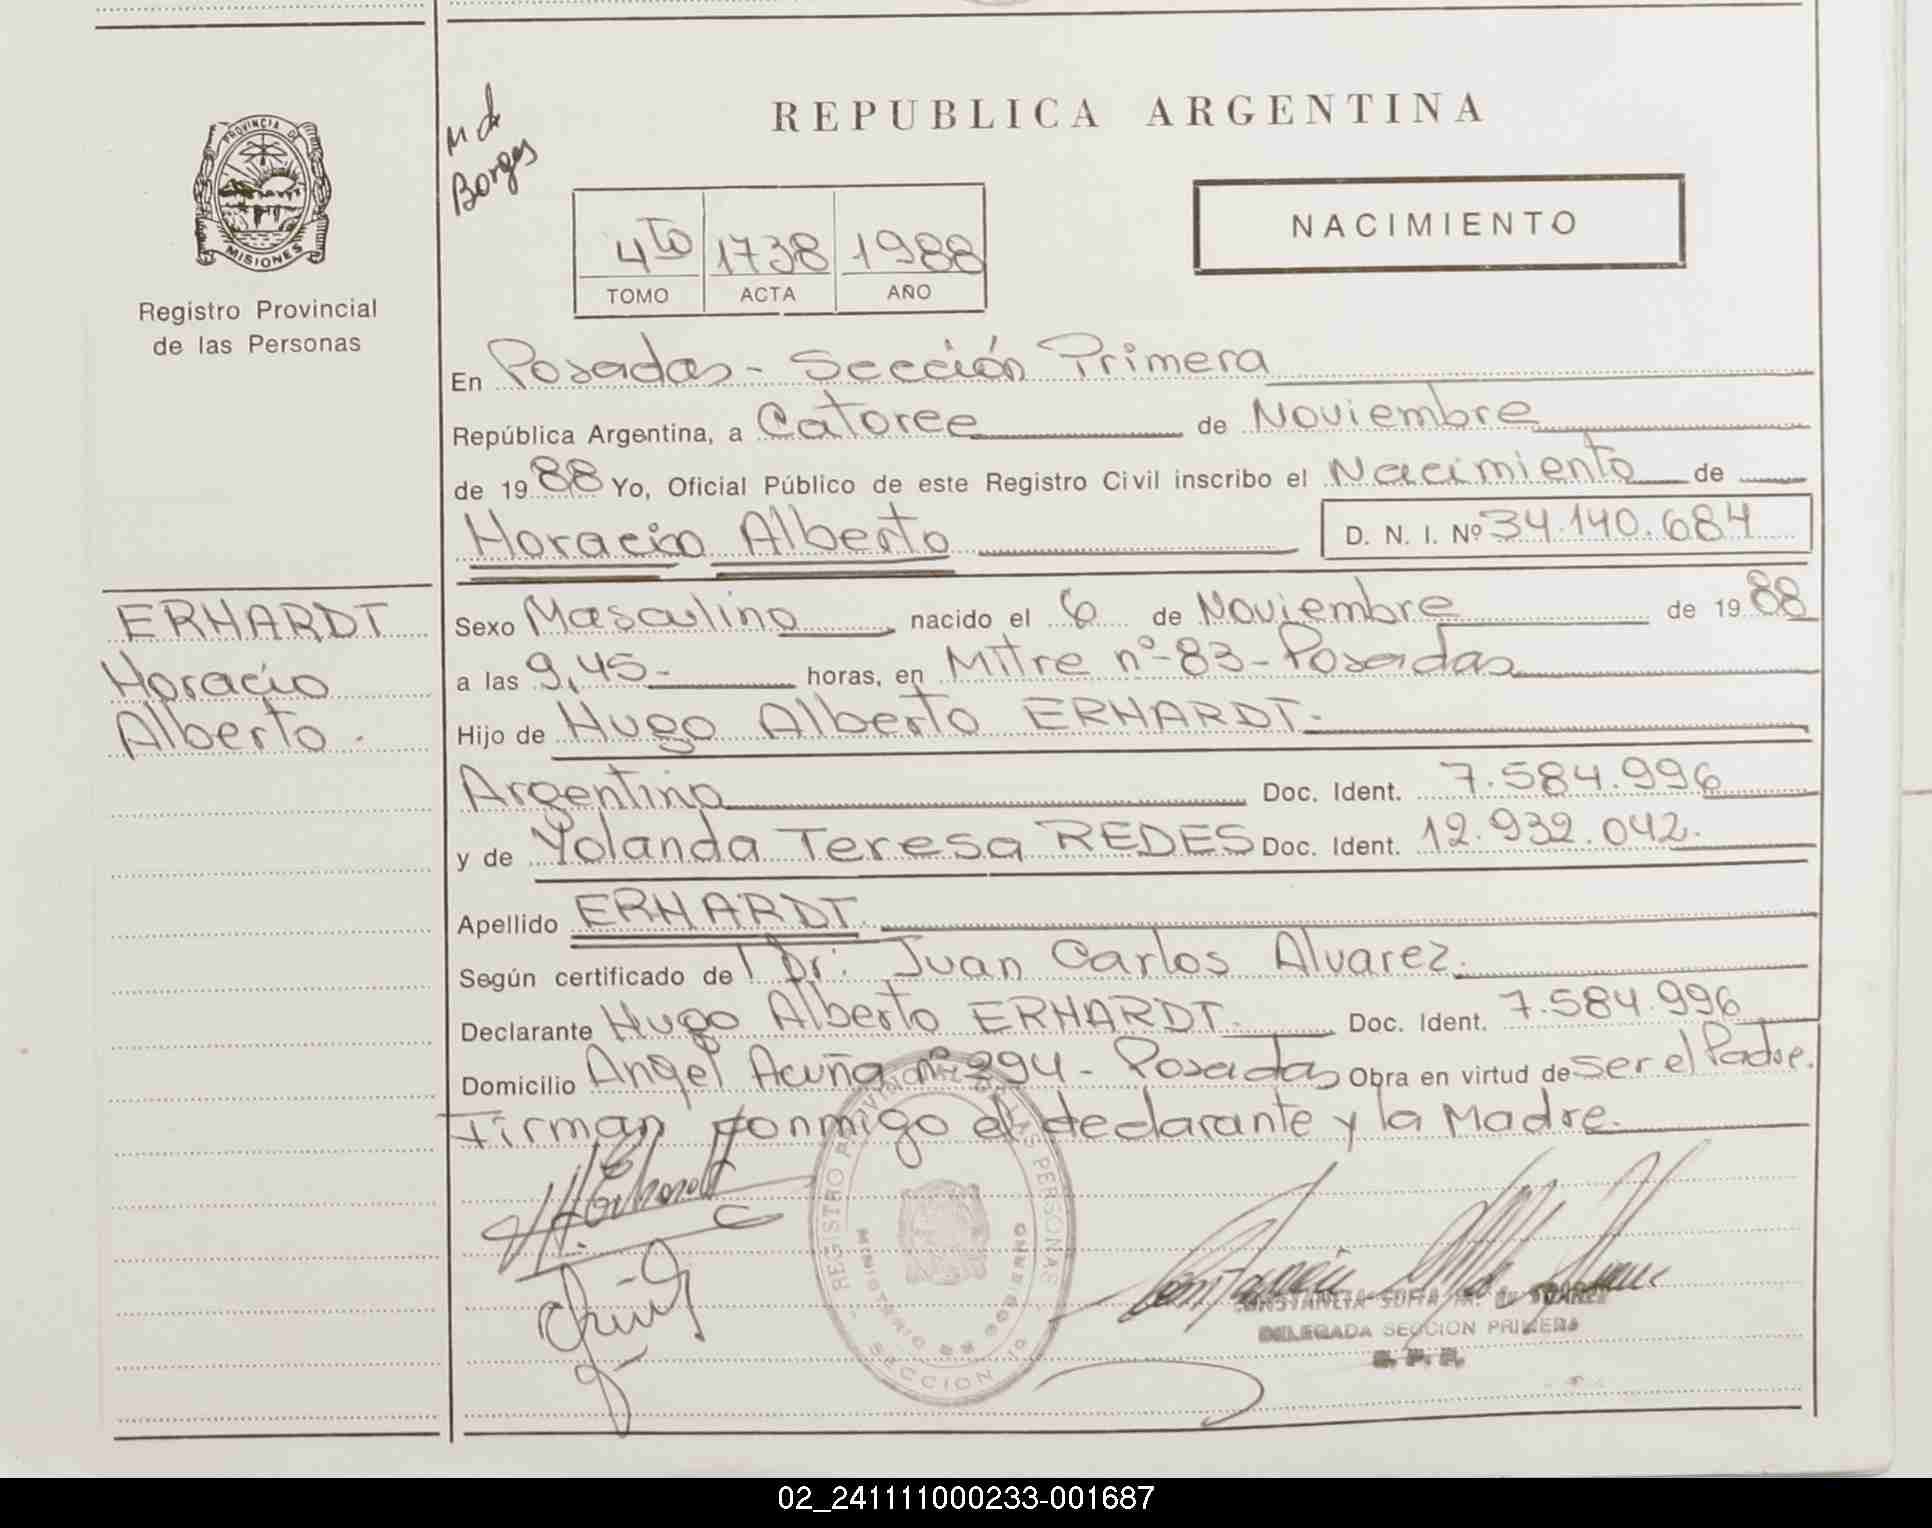 M de
Borges
REPUBLICA ARGENTINA
PROVINCIA DE
MISIONES
Registro Provincial
de las Personas
4to 1738 1988
TOMO ACTA AÑO
NACIMIENTO
En Posadas - Sección Primera
República Argentina, a Catorce de Noviembre
de 1988 Yo, Oficial Público de este Registro Civil inscribo el Nacimiento de
Horacio Alberto D. N. I. Nº 34.140.684
ERHARDT
Horacio
Alberto.
Sexo Masculino nacido el 6 de Noviembre de 1988
a las 9,45- horas, en Mitre nº-83-Posadas
Hijo de Hugo Alberto ERHARDT.
Argentino Doc. Ident. 7.584.996
y de Yolanda Teresa REDES Doc. Ident. 12.932.042.
Apellido ERHARDT.
Según certificado de Dr. Juan Carlos Alvarez.
Declarante Hugo Alberto ERHARDT. Doc. Ident. 7.584.996
Domicilio Angel Acuña nº 294 - Posadas Obra en virtud de ser el Padre.
Firman conmigo el declarante y la Madre.
REGISTRO PROVINCIAL DE LAS PERSONAS
MINISTERIO DE GOBIERNO
SECCION 1º
CONSTANCIA SOFIA M. de SUAREZ
DELEGADA SECCION PRIMERA
R. P. P.
02_241111000233-001687